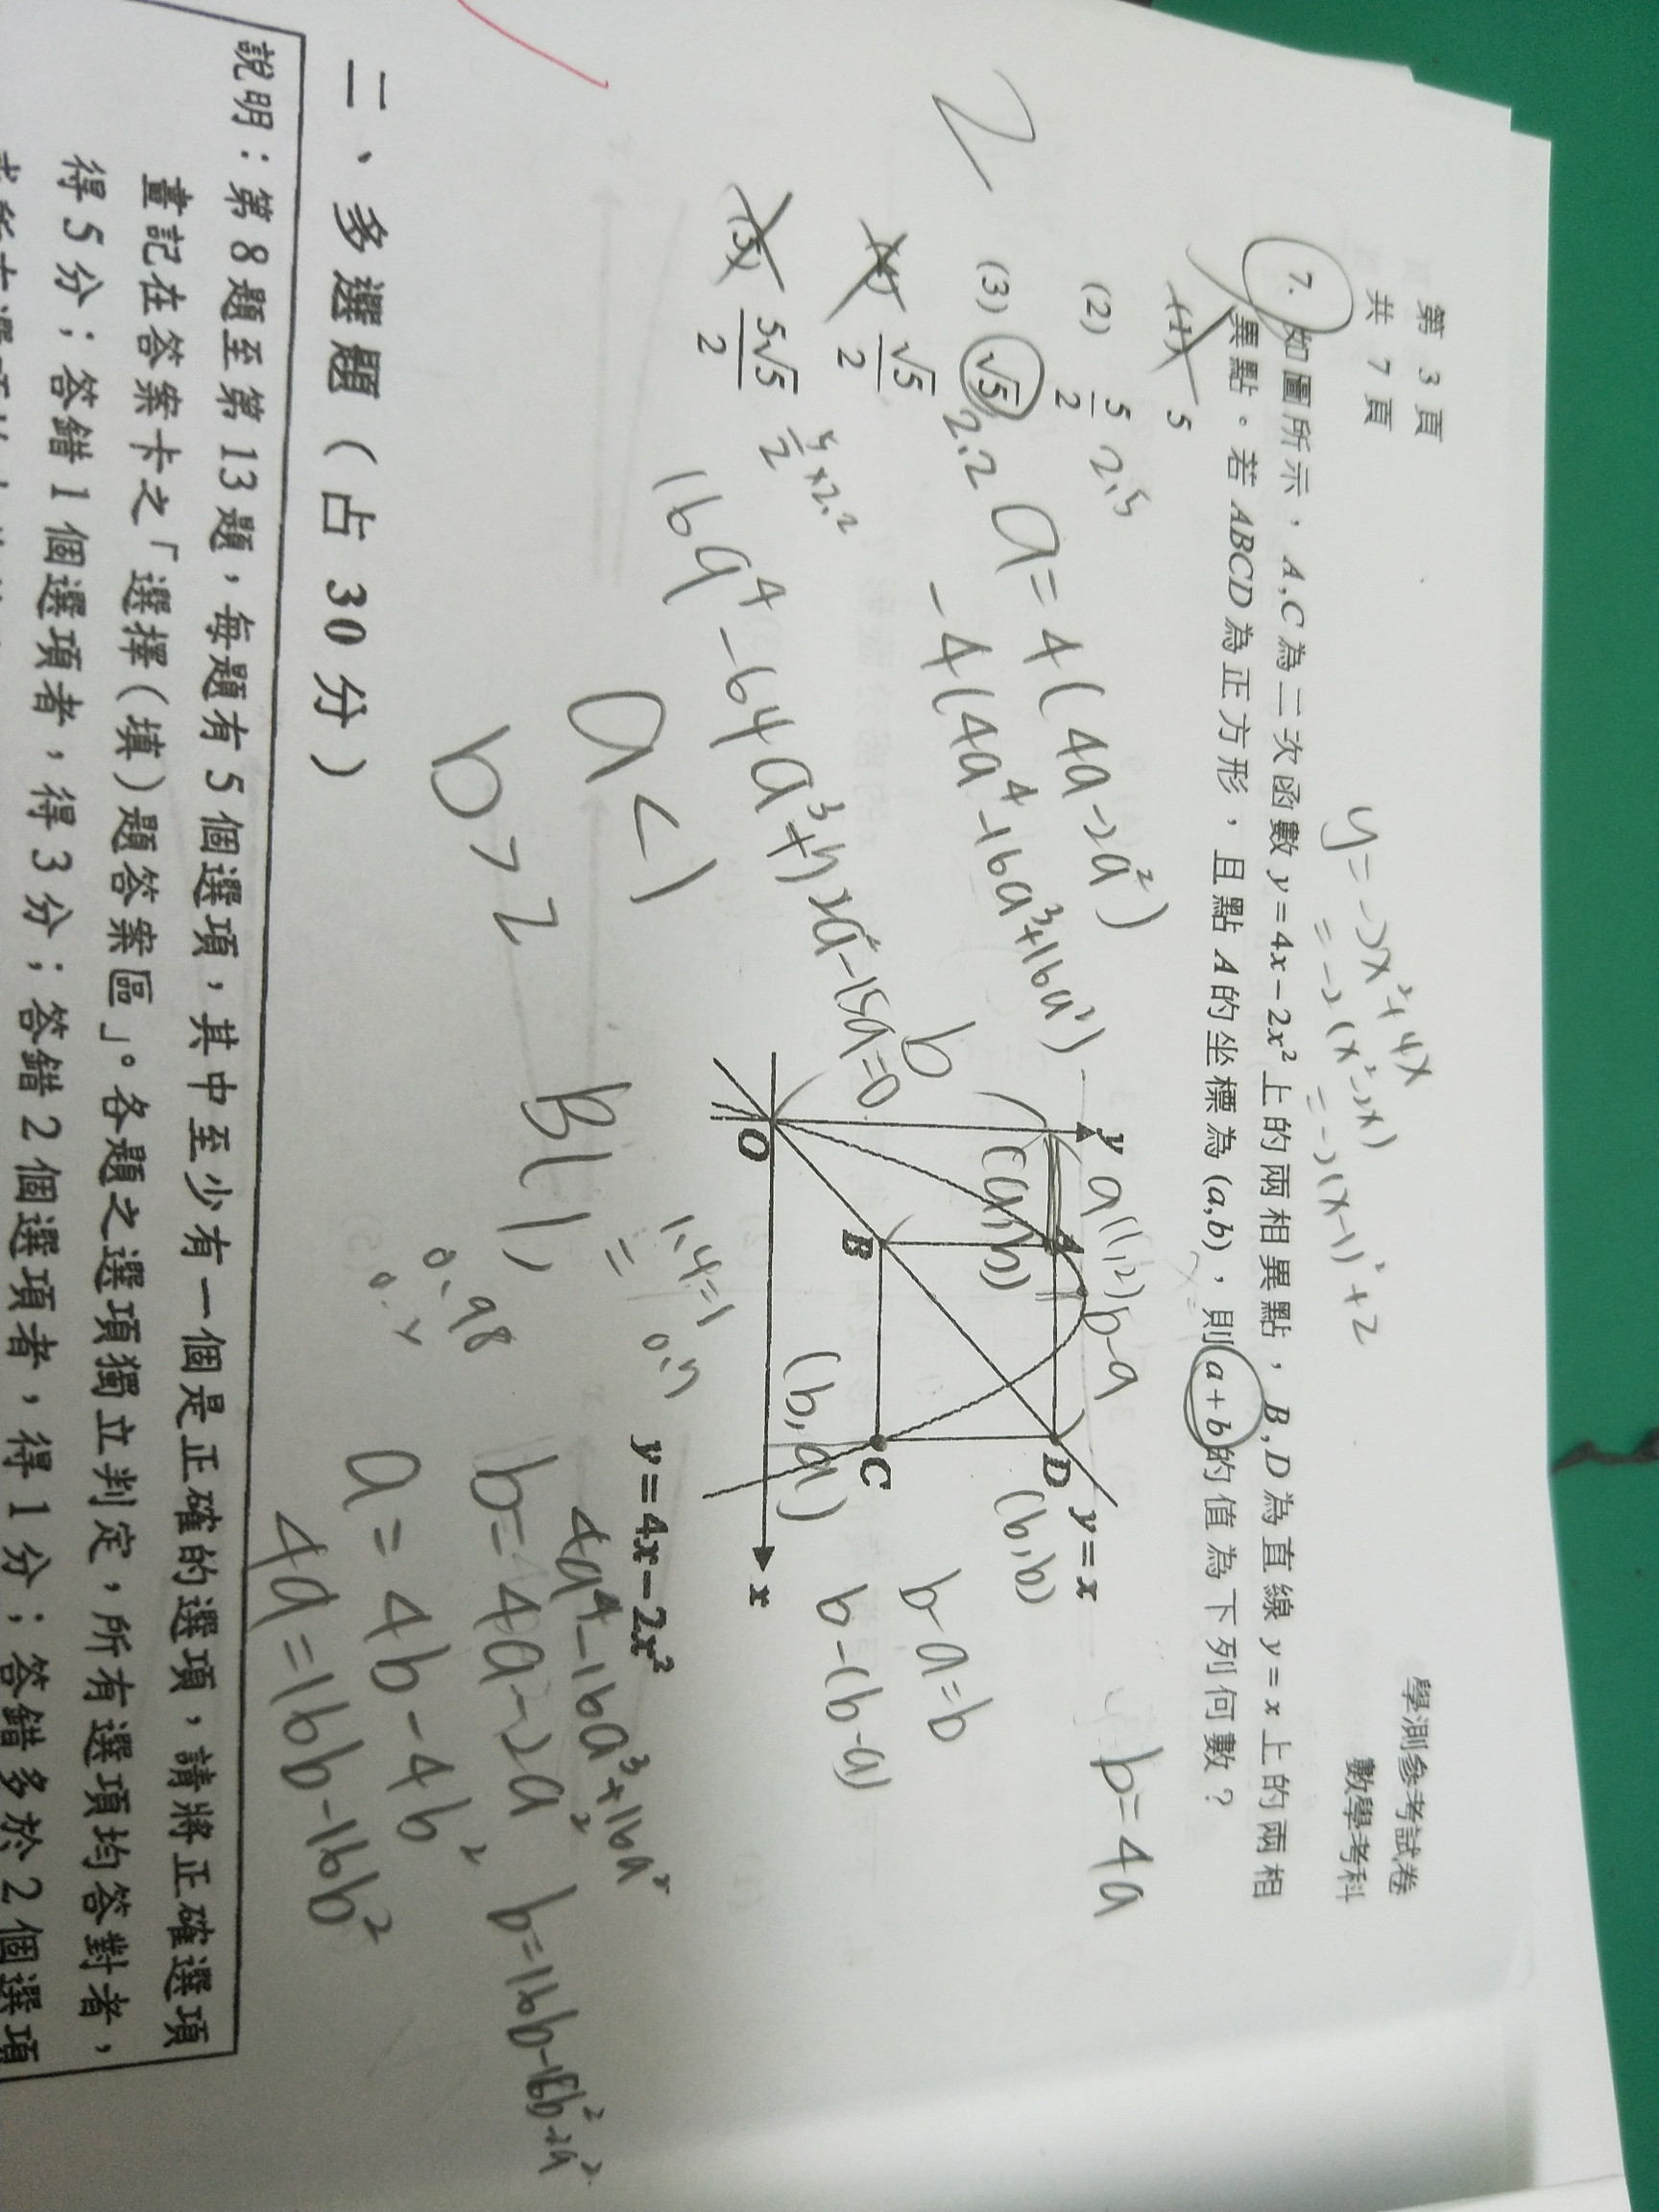 第 3 頁
共 7 頁
學測參考試卷
數學考科
y=-2x²+4x
=-2(x²-2x)
=-2(x-1)²+2
7. 如圖所示，A,C為二次函數y=4x-2x²上的兩相異點，B,D為直線y=x上的兩相
異點。若ABCD為正方形，且點A的坐標為(a,b)，則a+b的值為下列何數？
(1) 5
(2) 5/2 2.5
(3) √5 2.2
(4) √5/2
(5) 5√5/2
2
a=4(4a-2a²)
-4(4a⁴-16a³+16a²)
16a⁴-64a³+72a²-15a=0
a<1
b>2
y
a(1,2) b-a
A
(a,b)
b
D
(b,b)
y=x
B
C
(b,a)
O
x
y=4x-2x²
b=4a
b-a=b
b-(b-a)
B(1,
1.4=1
0.98
4a⁴-16a³+16a²
b=4a-2a²
a=4b-4b²
4a=16b-16b²
b=16b-16b²-2a²
二、多選題（占 30 分）
說明：第 8 題至第 13 題，每題有 5 個選項，其中至少有一個是正確的選項，請將正確選項
畫記在答案卡之「選擇（填）題答案區」。各題之選項獨立判定，所有選項均答對者，
得 5 分；答錯 1 個選項者，得 3 分；答錯 2 個選項者，得 1 分；答錯多於 2 個選項